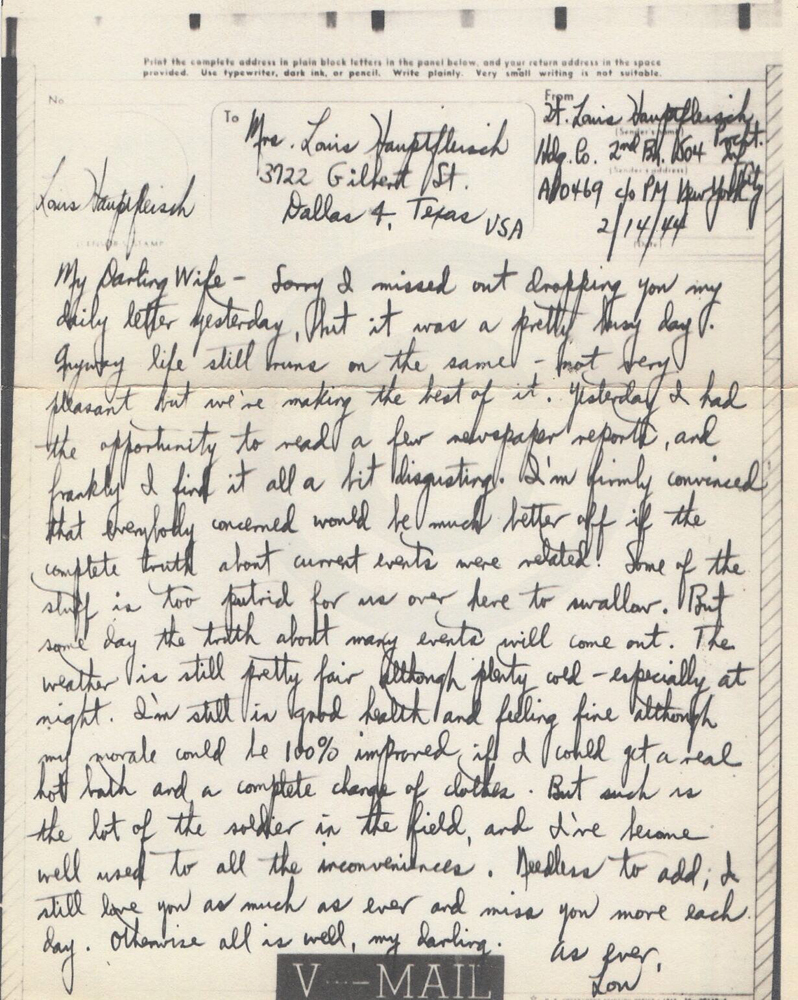 Print the complete address in plain block letters in the panel below, and your return address in the space
provided. Use typewriter, dark ink, or pencil. Write plainly. Very small writing is not suitable.
No.
To
From
Mrs. Louis Hauptfleisch
3722 Gilbert St.
Dallas 4, Texas
USA
Lt. Louis Hauptfleisch
(Sender's name)
Hdq. Co. 2nd Bn. 504 Prcht.
(Sender's address)
APO 469 c/o PM New York City
2/14/44
(Date)
Louis Hauptfleisch
CENSOR'S STAMP
My Darling Wife - Sorry I missed out dropping you my
daily letter yesterday, but it was a pretty busy day.
Anyway life still runs on the same - not very
pleasant but we're making the best of it. Yesterday I had
the opportunity to read a few newspaper reports, and
frankly I find it all a bit disgusting. I'm firmly convinced
that everybody concerned would be much better off if the
complete truth about current events were related. Some of the
stuff is too putrid for us over here to swallow. But
some day the truth about many events will come out. The
weather is still pretty fair although plenty cold - especially at
night. I'm still in good health and feeling fine although
my morale could be 100% improved if I could get a real
hot bath and a complete change of clothes. But such is
the lot of the soldier in the field, and I've become
well used to all the inconveniences. Needless to add, I
still love you as much as ever and miss you more each
day. Otherwise all is well, my darling.
As ever,
Lou
V···—MAIL